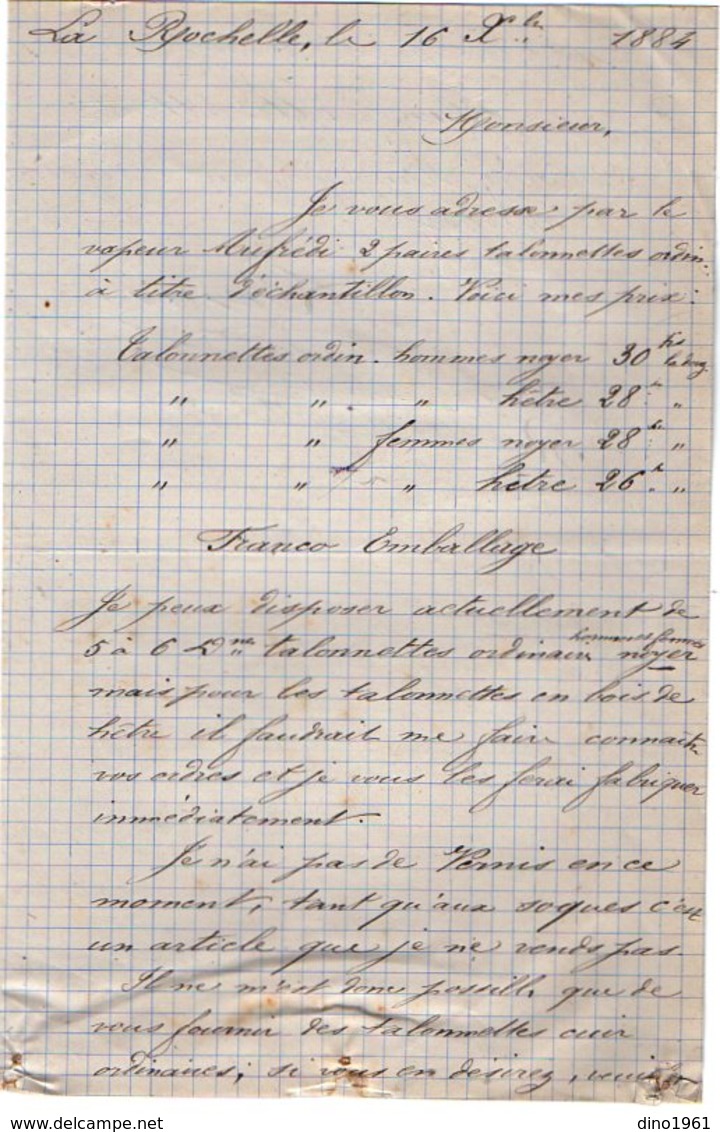 La Rochelle, le 16 Xbre 1884
Monsieur,
Je vous adresse par le
vapeur Aufrédi 2 paires talonnettes ordin.
à titre d'échantillon. Voici mes prix:
Talonnettes ordin. hommes noyer 30 frs la douz.
" " " hêtre 28 "
" " femmes noyer 28 "
" " " hêtre 26 "
Franco Emballage
Je peux disposer actuellement de
5 à 6 Dnes talonnettes ordinaires hommes femmes noyer
mais pour les talonnettes en bois de
hêtre il faudrait me faire connaître
vos ordres et je vous les ferai fabriquer
immédiatement.
Je n'ai pas de Vernis en ce
moment, tant qu'aux soques c'est
un article que je ne vends pas.
Il ne m'est donc possible que de
vous fournir des talonnettes cuir
ordinaires; si vous en désirez,
dino1961